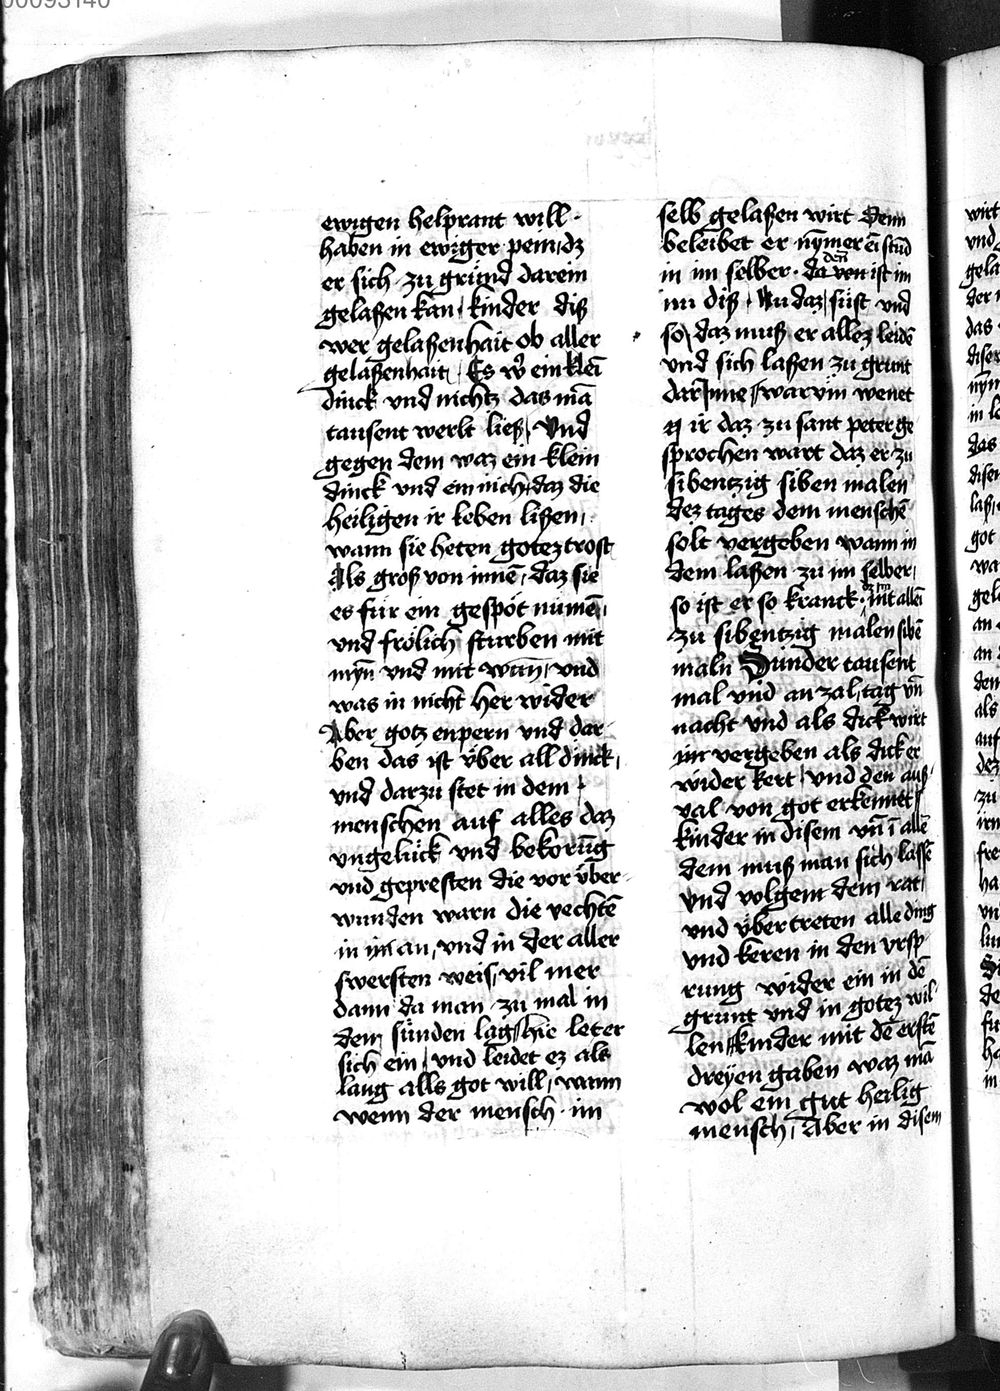 00093140
ewigen helprant will
haben in ewiger pein dz
er sich zu grund darein
gelaßen kan kinder diß
wer gelaßenhait ob aller
gelaßenhait Es w̉ ein kleī
dinck und nichtz das mā
tausent werlt ließ Und
gegen dem waz ein klein
dinck und ein nicht daz die
heiligen ir leben lißen
wann sie heten gotez trost
Als groß von innē daz sie
es fur ein gespöt numē
und frölich sturben mit
myn und mit wan̄ und
was in nicht her wider
Aber gotz enpern und dar
ben das ist über all dinck
und darzu stet in dem
menschen auf alles daz
vngelück und bekorūg
und gepresten die vor über
wunden warn die vechtē
in im an und in der aller
swersten weis vil mer
dann da man zu mal in
den sünden lag hie leter
sich ein und leidet ez als
lang alls got will wann
wenn der mensch im
selb gelaßen wirt denn
beleibet er nymer eī stūd
in im selber da von ist im
nu diß Nu daz süst und
so daz muß er allez leidē
und sich laßen zu grunt
darInne warvm wenet
ir daz zu sant peter ge
sprochen wart daz er zu
sibentzig siben malen
dez tages dem menschē
solt vergeben wann in
dem laßen zu im selber
so ist er so kranck mit allē
zu sibentzig malen sibē
maln Sunder tausent
mal und an zal tag vn̄
nacht und als dick wirt
im vergeben als dick er
wider kert und den auß
val von got erkennet
kinder in disem vn̄ ī allē
dem muß man sich lassē
und volgem dem rat
und übertreten alle ding
und keren in den vrsp
rung wider ein in dē
grunt und in gotez wil
len kinder mit dē erstē
dreyen gaben waz mā
wol ein gut heilig
mensch Aber in disem